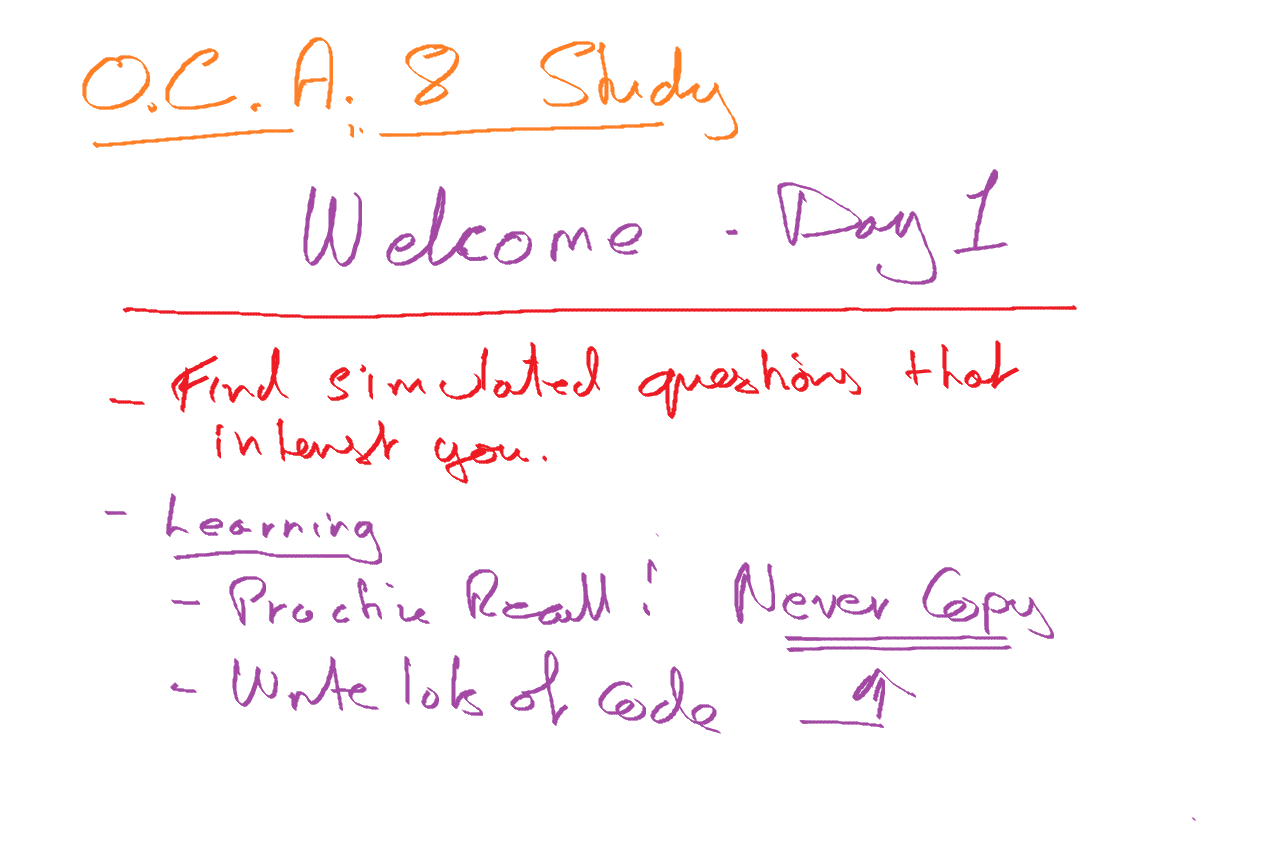 O.C.A. 8 Study
Welcome - Day 1
- Find simulated questions that
interest you.
- Learning
- Practice Recall! Never Copy
- Write lots of code